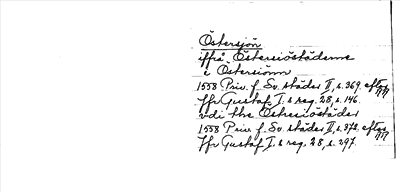 Östersjön
iffrå Östersiöstäderne
i Östersiönn
1558 Priv. f. Sv. städer II, s. 369, efter
Jfr Gustaf I:s reg. 28, s. 146.
vdi the Östresiöstäder
1558 Priv. f. Sv. städer II, s. 372, efter
Jfr Gustaf I:s reg. 28, s. 297.